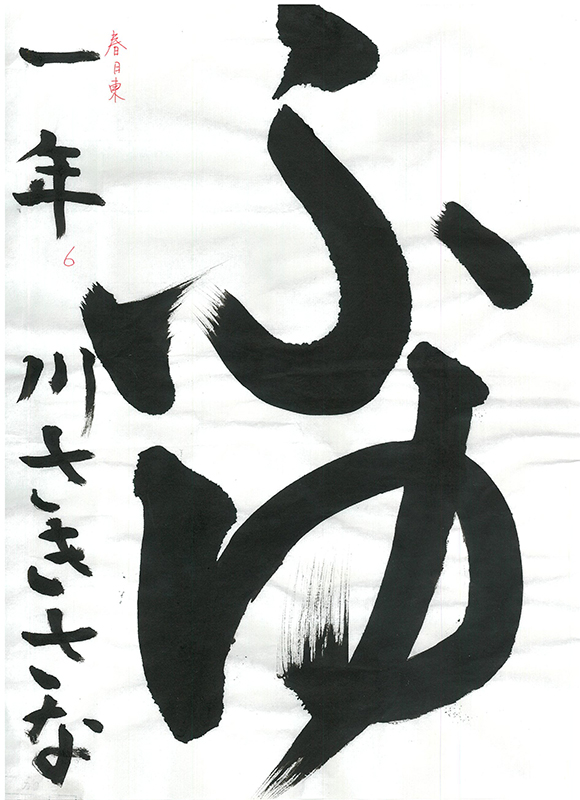 ふゆ
春日東
一年 川さきさな
6